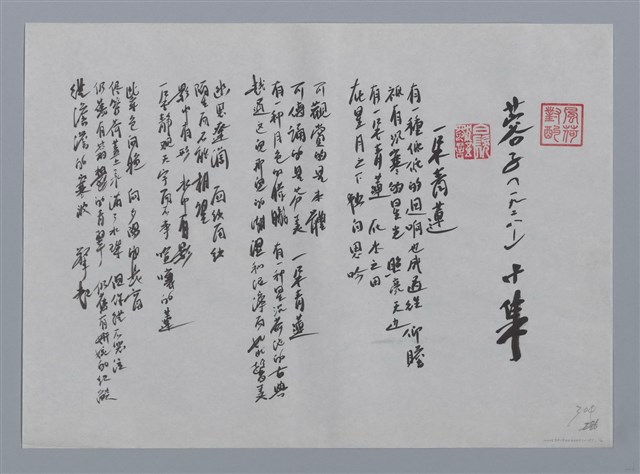 蓉子(一九二八—)
一朵青蓮
有一種低低的回響也成過往 仰瞻
祇有沉寒的星光 照亮天邊
有一朵青蓮 在水之田
在星月之下獨自思吟
可觀賞的是本體
可傳誦的是芬美 一朵青蓮
有一種月色的朦朧 有一種星沉荷池的古典
越過這兒那兒的潮濕和泥濘而如此馨美
幽思遼闊 面紗面紗
陌生而不能相望
影中有形 水中有影
一朵靜觀天宇而不事喧嚷的蓮
紫色向晚 向夕陽的長窗
儘管荷蓋上承滿了水珠 但你從不哭泣
仍舊有蓊鬱的青翠 仍舊有妍婉的紅焰
從澹澹的寒波 擎起